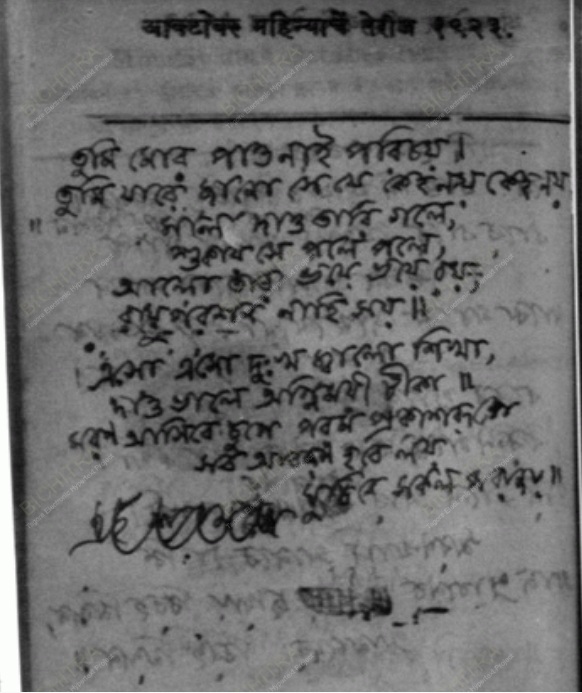 आक्टोबर महिन्याचें तेरीज १९२३.
তুমি মোর পাও নাই পরিচয়॥
তুমি যারে জানো সে যে কেহ নয় কেহ নয়
মালা দাও তারি গলে,
শুকায় সে পলে পলে,
আলো তার ভয়ে ভয়ে রয়,
বায়ু পরশন নাহি সয়॥
এসো এসো দুঃখ জ্বালো শিখা,
দাও ভালে অগ্নিময়ী টীকা॥
মরণ আসিবে চুপে পরম প্রকাশরূপে
সব আবরণ হবে লয়
ঘুচিবে সকল পরাজয়॥